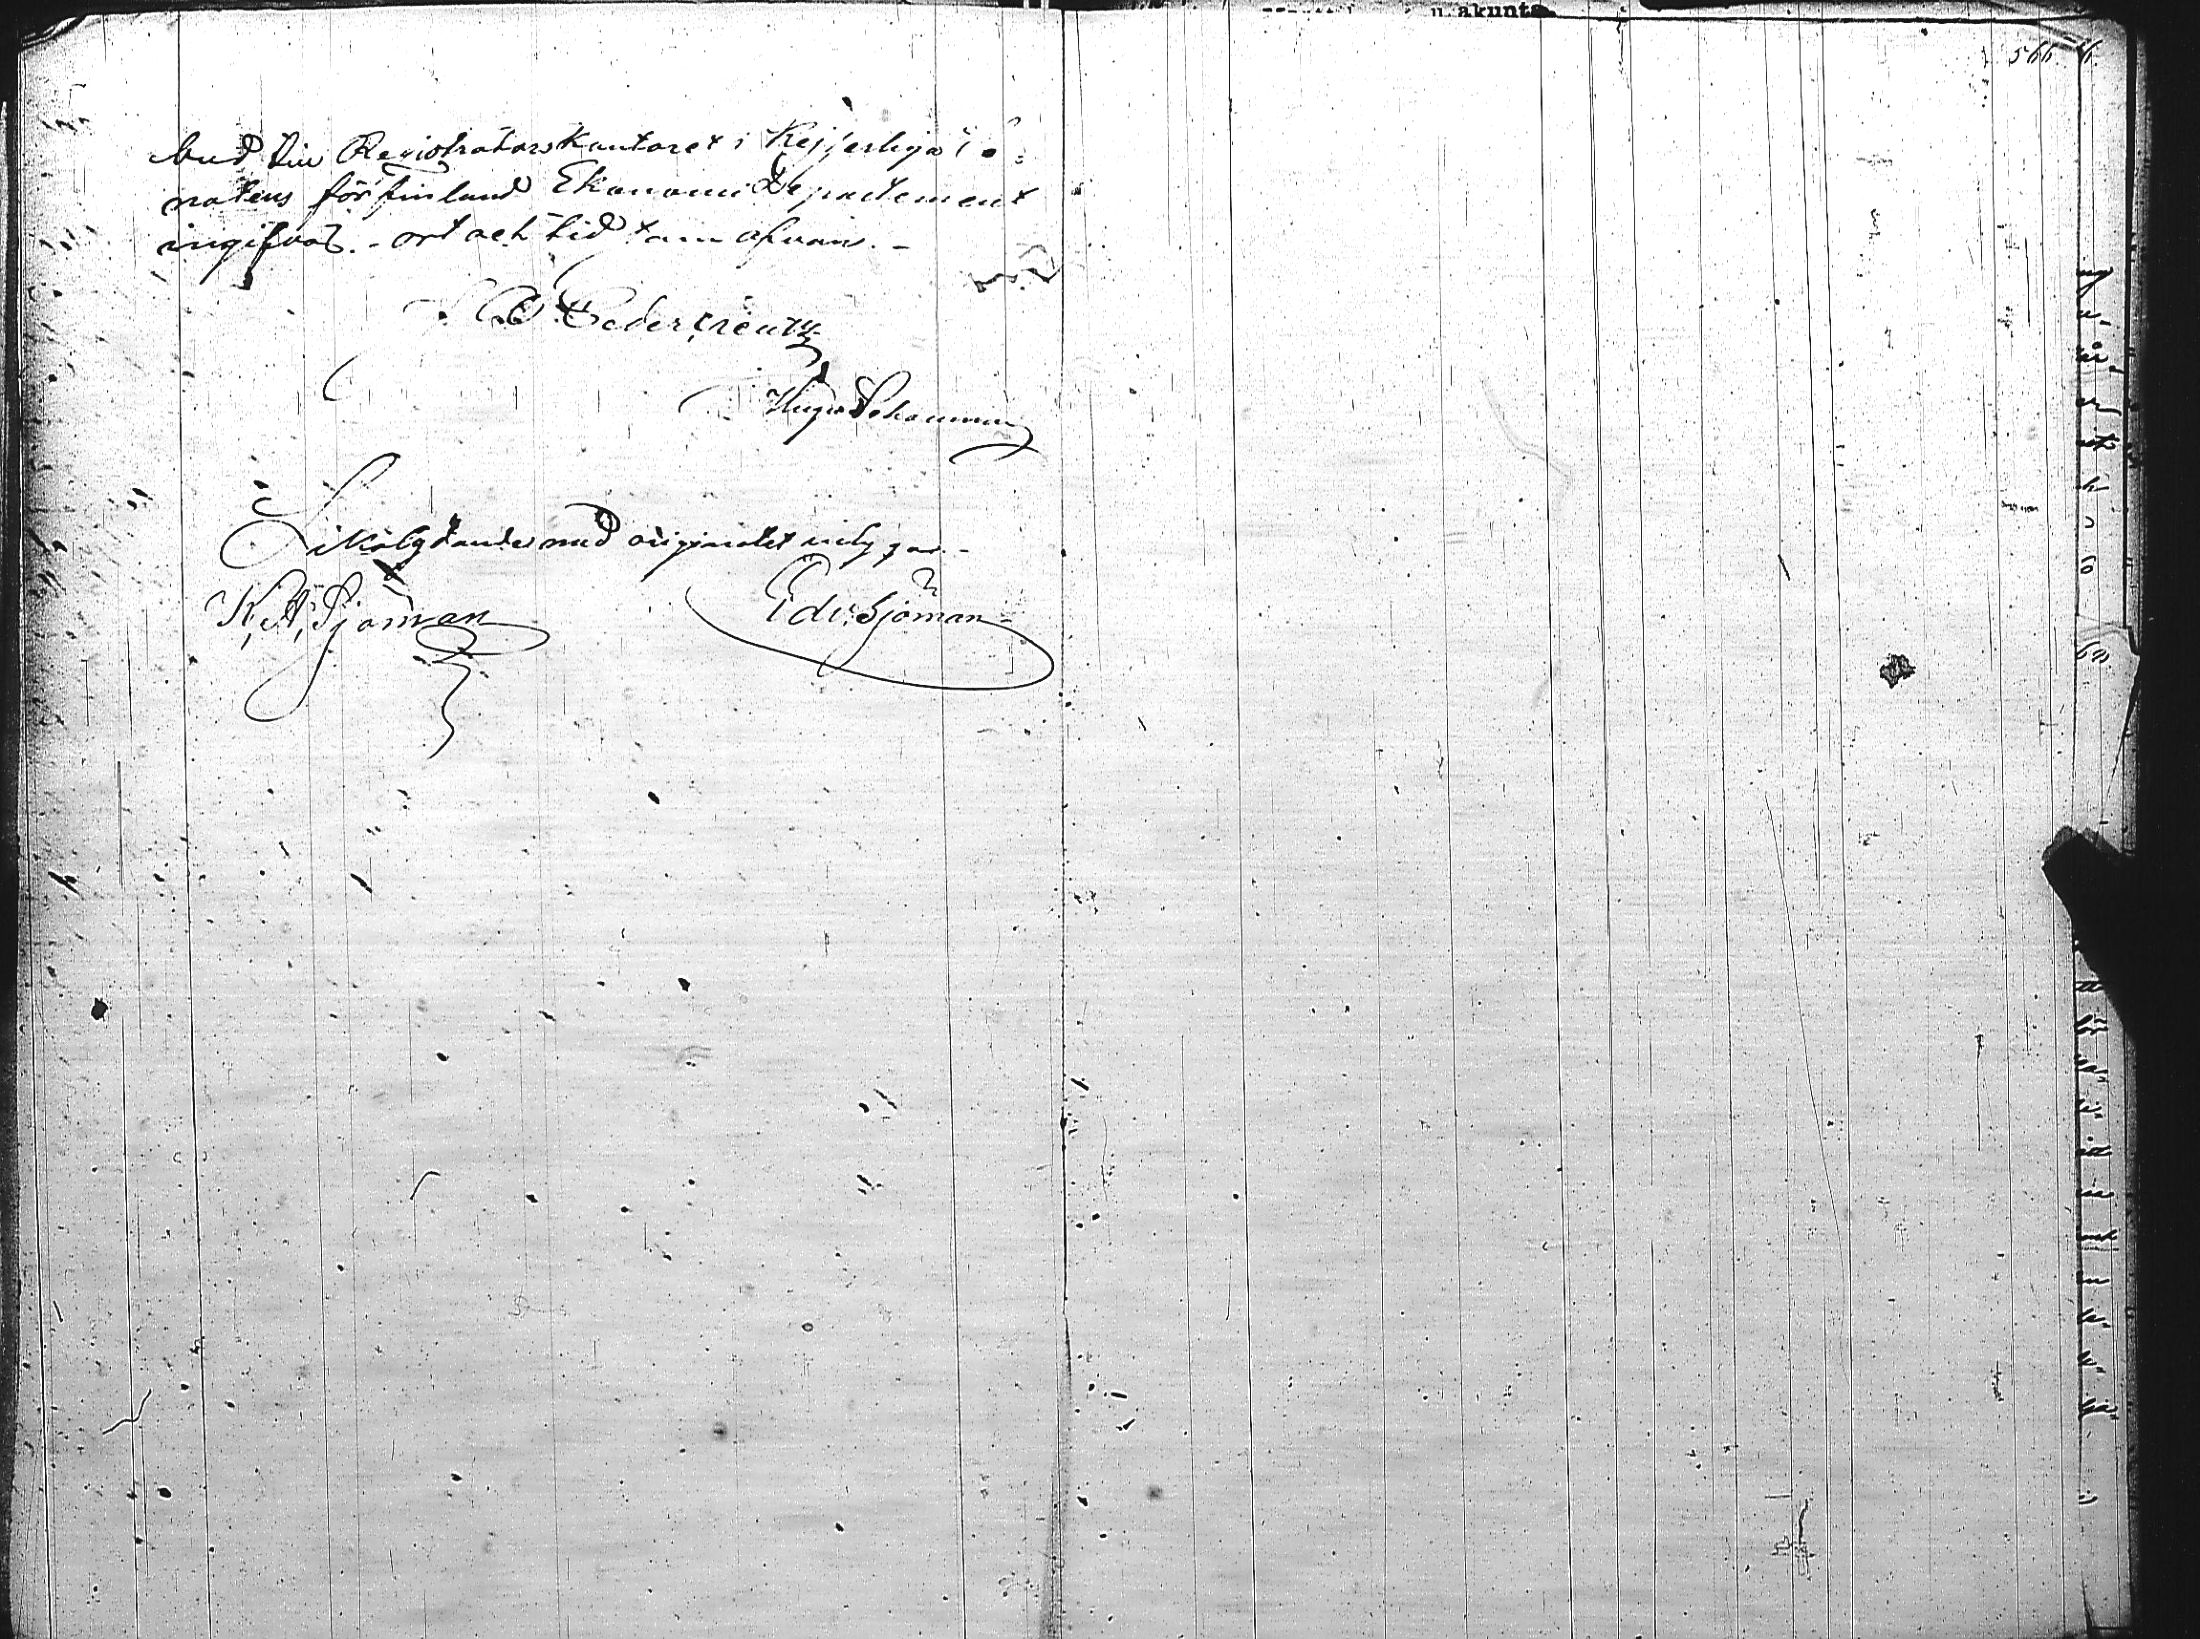 566
bud till Registratorskontoret i Kejserliga Se-
natens för Finland Ekonomi Departement
ingifvas. - ort och tid som ofvan. -
Cedercreutz
Hugo Schauman
Likalydande med originalet intyga. -
K. A. Sjöman
Edv. Sjöman